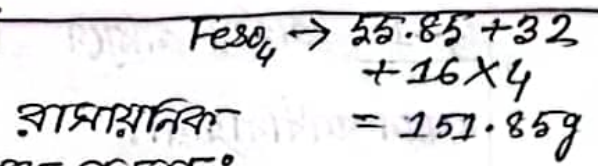 FeSO₄ → 55.85 + 32
+ 16 × 4
রাসায়নিক = 151.85g